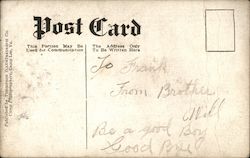 Post Card
This Portion May Be
Used for Communication
The Address Only
To Be Written Here
To Frank
From Brother
Will
Be a good Boy
Good Bye